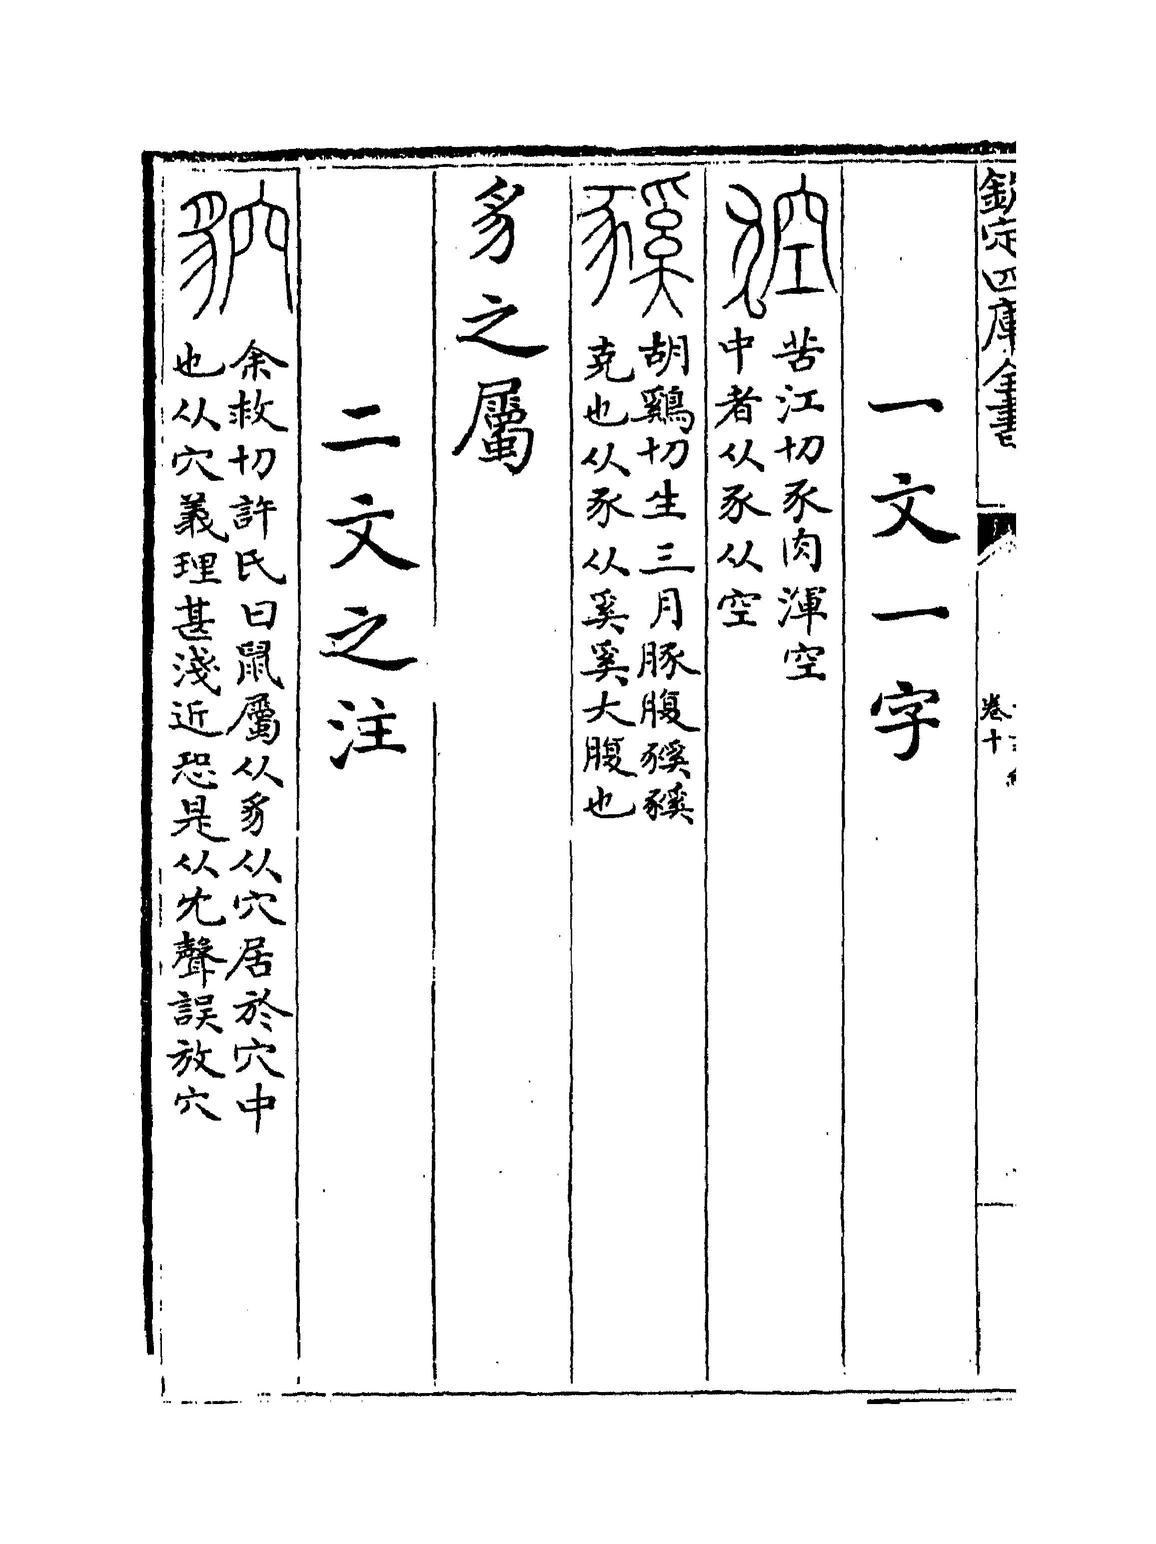 欽定四庫全書
卷十
一文一字
苦江切豕肉渾空
中者从豕从空
豯
胡鷄切生三月豚腹豯豯
克也从豕从奚奚大腹也
豸之屬
二文之注
余救切許氏曰鼠屬从豸从穴居於穴中
也从穴義理甚淺近恐是从冘聲誤放穴